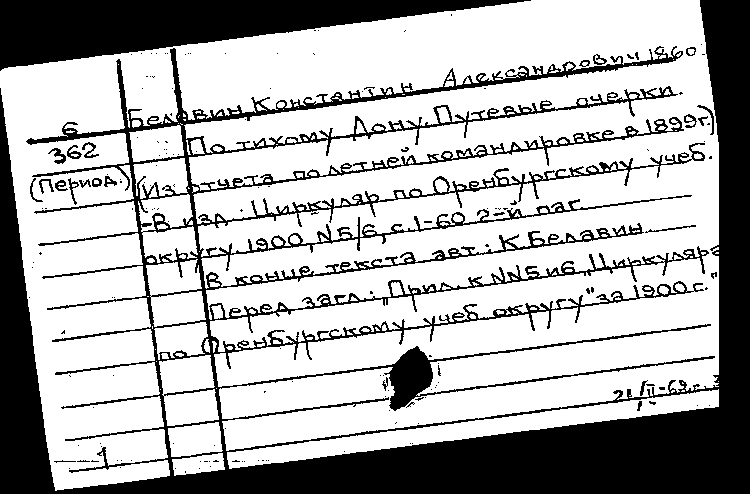 Белавин, Константин Александрович 1860
6
362
(Период.)
По тихому Дону. Путевые очерки.
(Из отчета по летней командировке в 1899г.)
-В изд.: Циркуляр по Оренбургскому учеб.
округу. 1900, N5/6, с. 1-60 2-й паг.
В конце текста авт.: К. Белавин.
Перед загл.: "Прил. к NN5 и 6 "Циркуляра
по Оренбургскому учеб округу" за 1900 г."
21/II-69г.
1